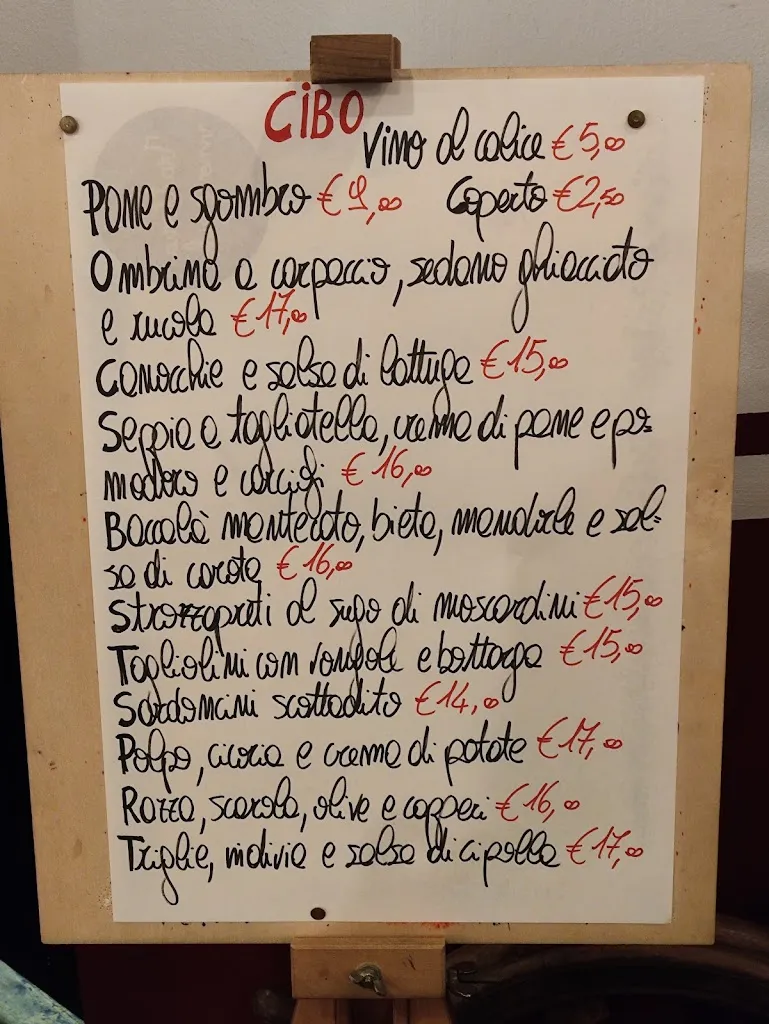 CIBO
Vino al calice € 5,00
Pane e sgombro € 9,00 Coperto € 2,50
Ombrina a carpaccio, sedano ghiacciato
e rucola € 17,00
Canocchie e salsa di lattuga € 15,00
Seppia a tagliatella, crema di pane e po=
modoro e carciofi € 16,00
Baccalà mantecato, bieta, mandorle e sal=
sa di carota € 16,00
Strozzapreti al sugo di moscardini € 15,00
Tagliolini con vongole e bottarga € 15,00
Sardoncini scottadito € 14,00
Polpo, cicoria e crema di patate € 17,00
Razza, scarola, olive e capperi € 16,00
Triglie, indivia e salsa di cipolla € 17,00